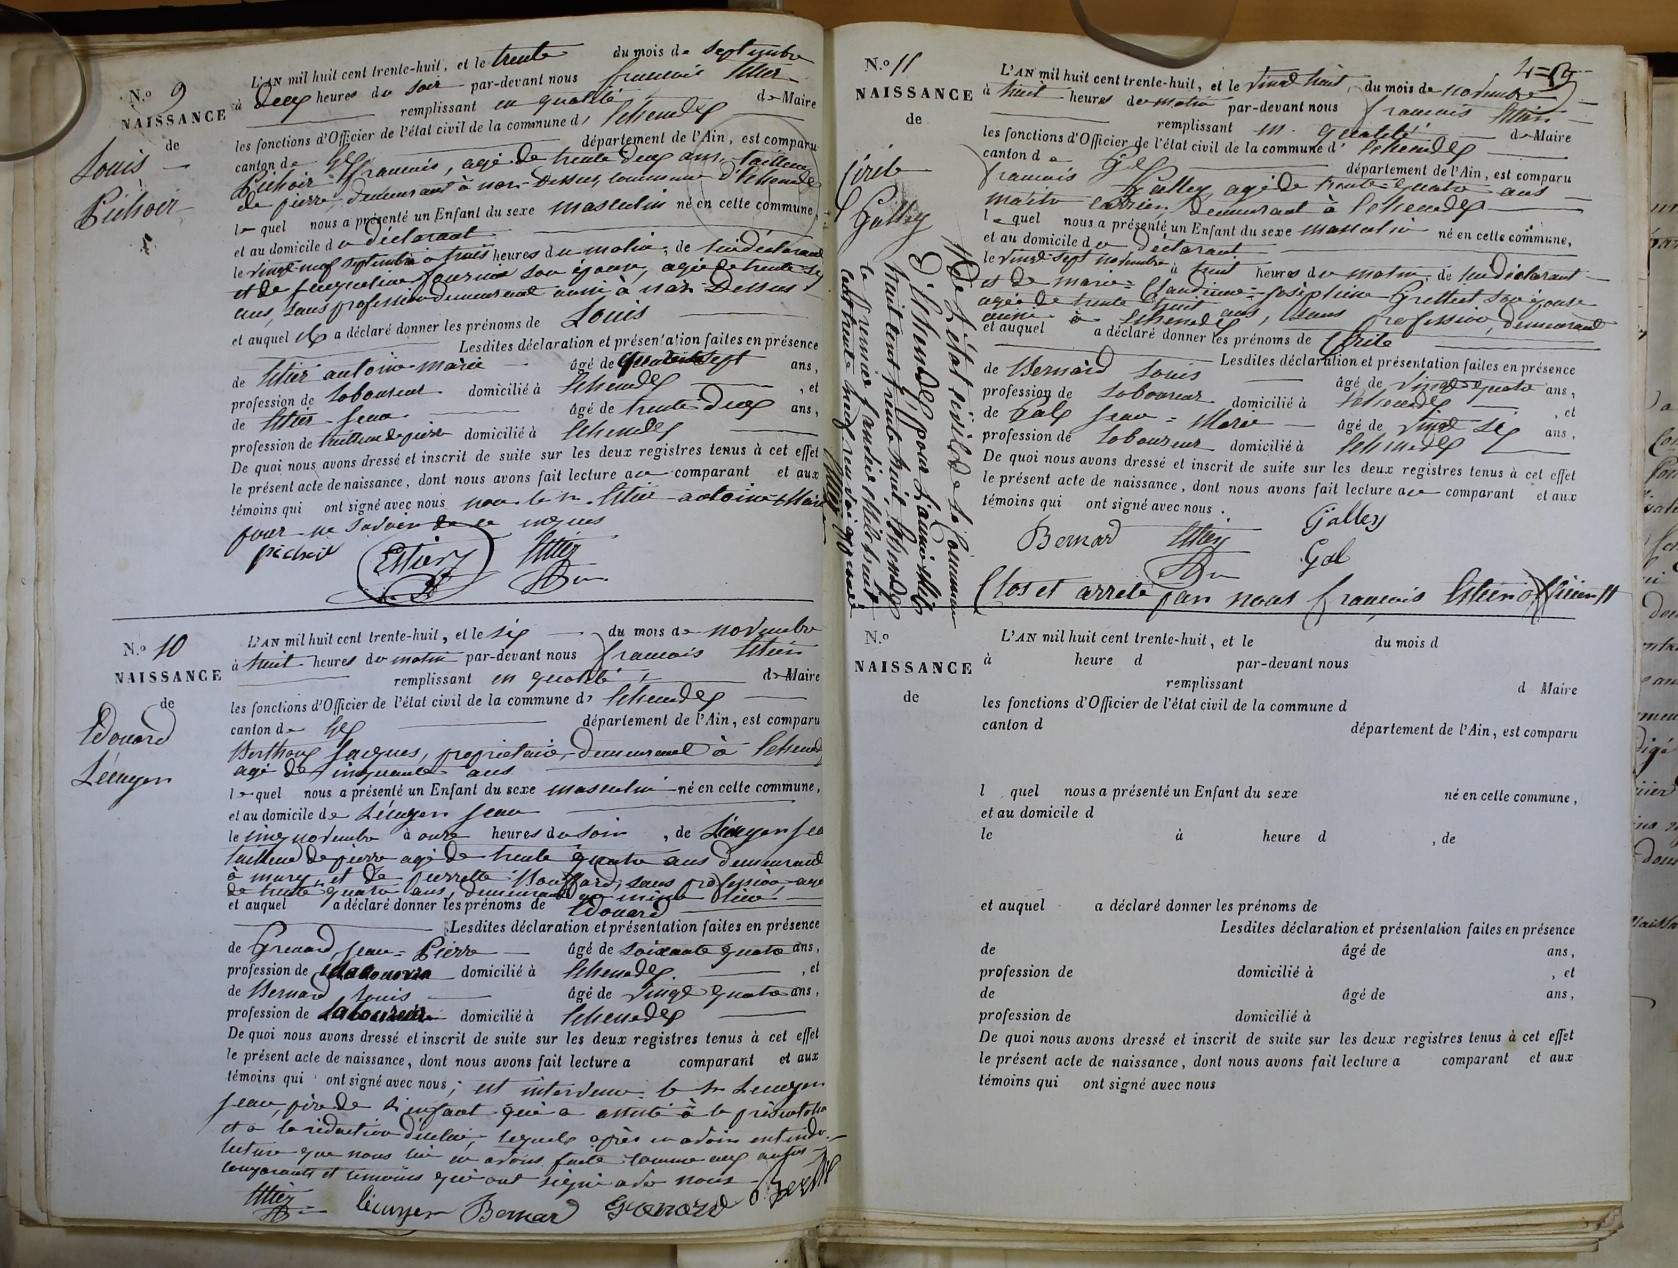 N.º 9
NAISSANCE
de
Louis
Pichoir
L'AN mil huit cent trente-huit, et le trente du mois de septembre
à deux heures du soir par-devant nous francois Estier
remplissant en qualité de Maire
les fonctions d'Officier de l'état civil de la commune d' Echenevex
canton de Gex département de l'Ain, est comparu
Pichoir francois, agé de trente deux ans, tailleur
de pierre, demeurant à Naz-Dessus, commune d'Echenevex
lequel nous a présenté un Enfant du sexe masculin né en cette commune,
et au domicile du déclarant
le vingt neuf septembre à trois heures du matin, de lui déclarant
et de jacqueline fournier son épouse, agée de trente six
ans, sans profession demeurant aussi à Naz-Dessus
et auquel il a déclaré donner les prénoms de Louis
Lesdites déclaration et présentation faites en présence
de Estier antoine-marie âgé de quarante sept ans,
profession de laboureur domicilié à Echenevex , et
de Estier jean âgé de trente deux ans,
profession de tailleur de pierre domicilié à Echenevex
De quoi nous avons dressé et inscrit de suite sur les deux registres tenus à cet effet
le présent acte de naissance, dont nous avons fait lecture au comparant et aux
témoins qui ont signé avec nous non le sr. Estier antoine Marie
pour ne savoir de ce enquis
pichoir Estier Estier
N.º 10
NAISSANCE
de
Edouard
Lécuyer
L'AN mil huit cent trente-huit, et le six du mois de novembre
à huit heures du matin par-devant nous francois Estier
remplissant en qualité de Maire
les fonctions d'Officier de l'état civil de la commune d' Echenevex
canton de Gex département de l'Ain, est comparu
Berthoux Jacques, propriétaire, demeurant à Echenevex
agé de cinquante ans
lequel nous a présenté un Enfant du sexe masculin né en cette commune,
et au domicile de Lécuyer jean
le cinq novembre à onze heures du soir , de Lécuyer jean
tailleur de pierre agé de trente quatre ans demeurant
à mury, et de pierrette, sans profession, agée
de trente quatre ans, demeurant au même lieu
et auquel a déclaré donner les prénoms de Edouard
Lesdites déclaration et présentation faites en présence
de Grenard, jean-Pierre âgé de soixante quatre ans,
profession de domicilié à Echenevex , et
de Bernard Louis âgé de vingt quatre ans,
profession de laboureur domicilié à Echenevex
De quoi nous avons dressé et inscrit de suite sur les deux registres tenus à cet effet
le présent acte de naissance, dont nous avons fait lecture a comparant et aux
témoins qui ont signé avec nous ; est intervenu le sr Lecuyer
jean, père de l'enfant qui a assisté à la présentation
et à la rédaction d'icelui, lequel après en avoir entendu
lecture que nous lui en avons faite comme aux autres
comparants et témoins qui ont signé avec nous
Estier lécuyer Bernard Grenard
4=
N.º 11
NAISSANCE
de
Cirile
Galley
L'AN mil huit cent trente-huit, et le vingt huit du mois de novembre
à huit heures du matin par-devant nous francois Estier
remplissant en qualité de Maire
les fonctions d'Officier de l'état civil de la commune d' Echenevex
canton de Gex département de l'Ain, est comparu
francois Galley, agé de trente-quatre ans
maitre carrier, demeurant à Echenevex
lequel nous a présenté un Enfant du sexe masculin né en cette commune,
et au domicile du Déclarant
le vingt sept novembre à huit heures du matin, de lui déclarant
et de marie=Claudine=josephine son épouse
agée de trente huit ans, sans profession, demeurant
aussi à Echenevex
et auquel a déclaré donner les prénoms de Cirile
Lesdites déclaration et présentation faites en présence
de Bernard Louis âgé de vingt-quatre ans,
profession de laboureur domicilié à Echenevex , et
de Galz jean=Marie âgé de vingt six ans,
profession de laboureur domicilié à Echenevex
De quoi nous avons dressé et inscrit de suite sur les deux registres tenus à cet effet
le présent acte de naissance, dont nous avons fait lecture au comparant et aux
témoins qui ont signé avec nous .
Bernard Estier Galley
Gal
Clos et arrêté par nous françois Estier officier
de l'état civil de la Commune
d'Echenevex, pour l'année mil
huit cent trente huit. Echenevex
le premier janvier mil huit
cent trente neuf
Estier
N.º
NAISSANCE
de
L'AN mil huit cent trente-huit, et le du mois d
à heure d par-devant nous
remplissant d Maire
les fonctions d'Officier de l'état civil de la commune d
canton d département de l'Ain, est comparu
l quel nous a présenté un Enfant du sexe né en cette commune,
et au domicile d
le à heure d , de
et auquel a déclaré donner les prénoms de
Lesdites déclaration et présentation faites en présence
de âgé de ans,
profession de domicilié à , et
de âgé de ans,
profession de domicilié à
De quoi nous avons dressé et inscrit de suite sur les deux registres tenus à cet effet
le présent acte de naissance, dont nous avons fait lecture a comparant et aux
témoins qui ont signé avec nous